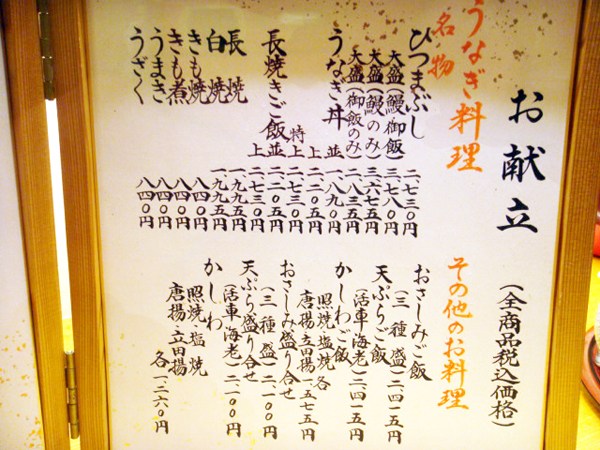 お献立
(全商品税込価格)
うなぎ料理
名物
ひつまぶし 二、七三〇円
大盛(鰻御飯) 三、七八〇円
大盛(鰻のみ) 三、六七五円
大盛(御飯のみ) 二、八三五円
うなぎ丼 並 一、八九〇円
上 二、二〇五円
特上 二、七三〇円
長焼きご飯 並 二、二〇五円
上 二、七三〇円
長焼 一、九九五円
白焼 一、九九五円
きも焼 八四〇円
きも煮 八四〇円
うまき 八四〇円
うざく 八四〇円
その他のお料理
おさしみご飯
(三種盛) 二、四一五円
天ぷらご飯
(活車海老) 二、四一五円
かしわご飯
照焼・塩焼
唐揚・立田揚 各一、五七五円
おさしみ盛り合せ
(三種盛) 二、一〇〇円
天ぷら盛り合せ
(活車海老) 二、一〇〇円
かしわ
照焼・塩焼
唐揚・立田揚 各一、二六〇円